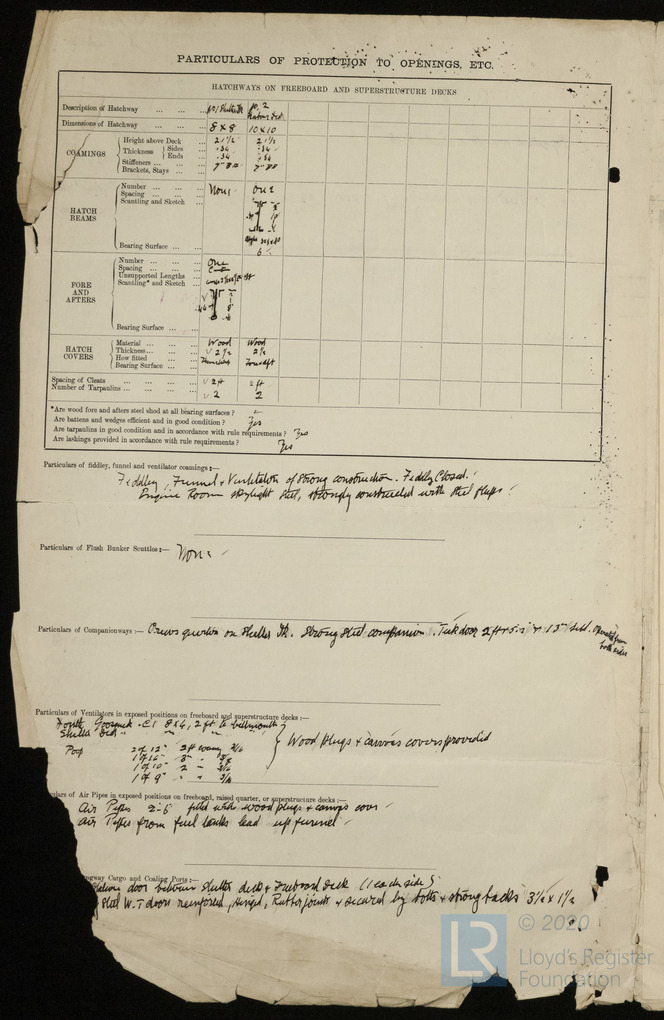 PARTICULARS OF PROTECTION TO OPENINGS, ETC.
HATCHWAYS ON FREEBOARD AND SUPERSTRUCTURE DECKS
Description of Hatchway ... ... ... No 1 No 2
Dimensions of Hatchway ... ... 8 x 8 10 x 10
COAMINGS
Height above Deck ... 2 1½ 2 1½
Thickness Sides ... .34 .34
Ends ... .34 .34
Stiffeners ... ...
Brackets, Stays ... ...
HATCH BEAMS
Number ... ... ... None One
Spacing ... ... ...
Scantling and Sketch ...
Bearing Surface ... ... 6"
FORE AND AFTERS
Number ... ... ... One
Spacing ... ... ...
Unsupported Lengths ...
Scantling* and Sketch ...
Bearing Surface ... ...
HATCH COVERS
Material ... ... ... Wood Wood
Thickness... ... ... 2½ 2½
How fitted ... ... Fore & aft
Bearing Surface ... ...
Spacing of Cleats ... ... ... ... 2 ft 2 ft
Number of Tarpaulins ... ... ... 2 2
*Are wood fore and afters steel shod at all bearing surfaces ? -
Are battens and wedges efficient and in good condition ? Yes
Are tarpaulins in good condition and in accordance with rule requirements ? Yes
Are lashings provided in accordance with rule requirements ? Yes
Particulars of fiddley, funnel and ventilator coamings :—
Fiddley, Funnel & Ventilators of strong construction. Fiddley Closed.
Engine Room skylight steel, strongly constructed with steel flaps.
Particulars of Flush Bunker Scuttles :— None
Particulars of Companionways :— Crews quarters on Shelter Dk. Strong steel companion. Teak door 2 ft x 5.5 x 13" sill. Operated from
both sides
Particulars of Ventilators in exposed positions on freeboard and superstructure decks :—
Gooseneck 8 x 6, 2 ft to bellmouth
Shelter Deck " " "
Poop 2 of 12" 2 ft coamg
Wood plugs & canvas covers provided
1 of 10" 2 "
1 of 9" " "
Particulars of Air Pipes in exposed positions on freeboard, raised quarter, or superstructure decks :—
Air Pipes 2'-6" fitted with wood plugs & canvas cover
Air Pipes from fuel tanks lead up funnel
ngway Cargo and Coaling Ports :—
door between shelter deck & Freeboard Deck (1 each side)
Steel W.T doors reinforced, hinged, Rubber joints & secured by bolts & strong backs 3½ x 1½
© 2020
LR
Lloyd's Register
Foundation